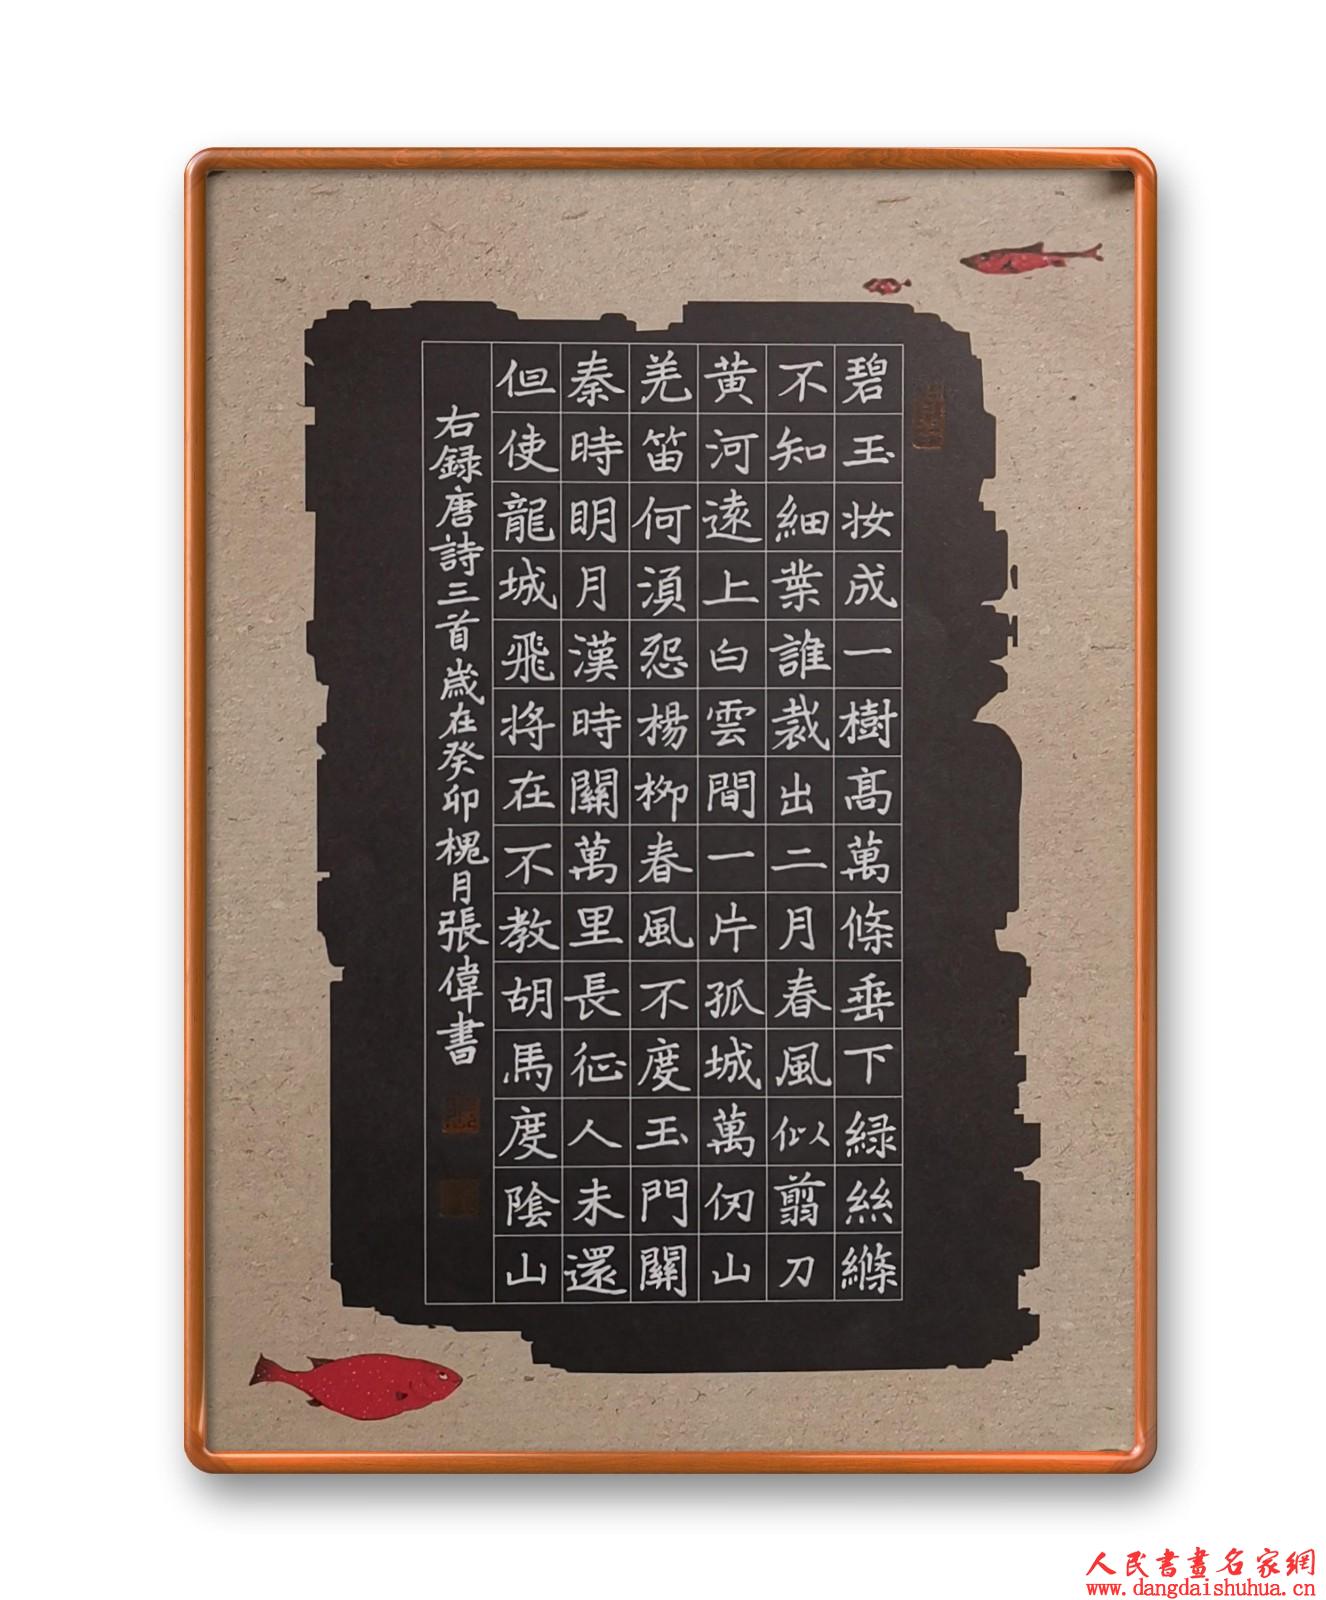 碧玉妆成一樹髙萬條垂下緑絲絛
不知細業誰裁出二月春風似翦刀
黄河遠上白雲間一片孤城萬仞山
羌笛何湏怨楊柳春風不度玉門關
秦時明月漢時關萬里長征人未還
但使龍城飛将在不教胡馬度陰山
右録唐詩三首歲在癸卯槐月張偉書
人民書畫名家網
www.dangdaishuhua.cn